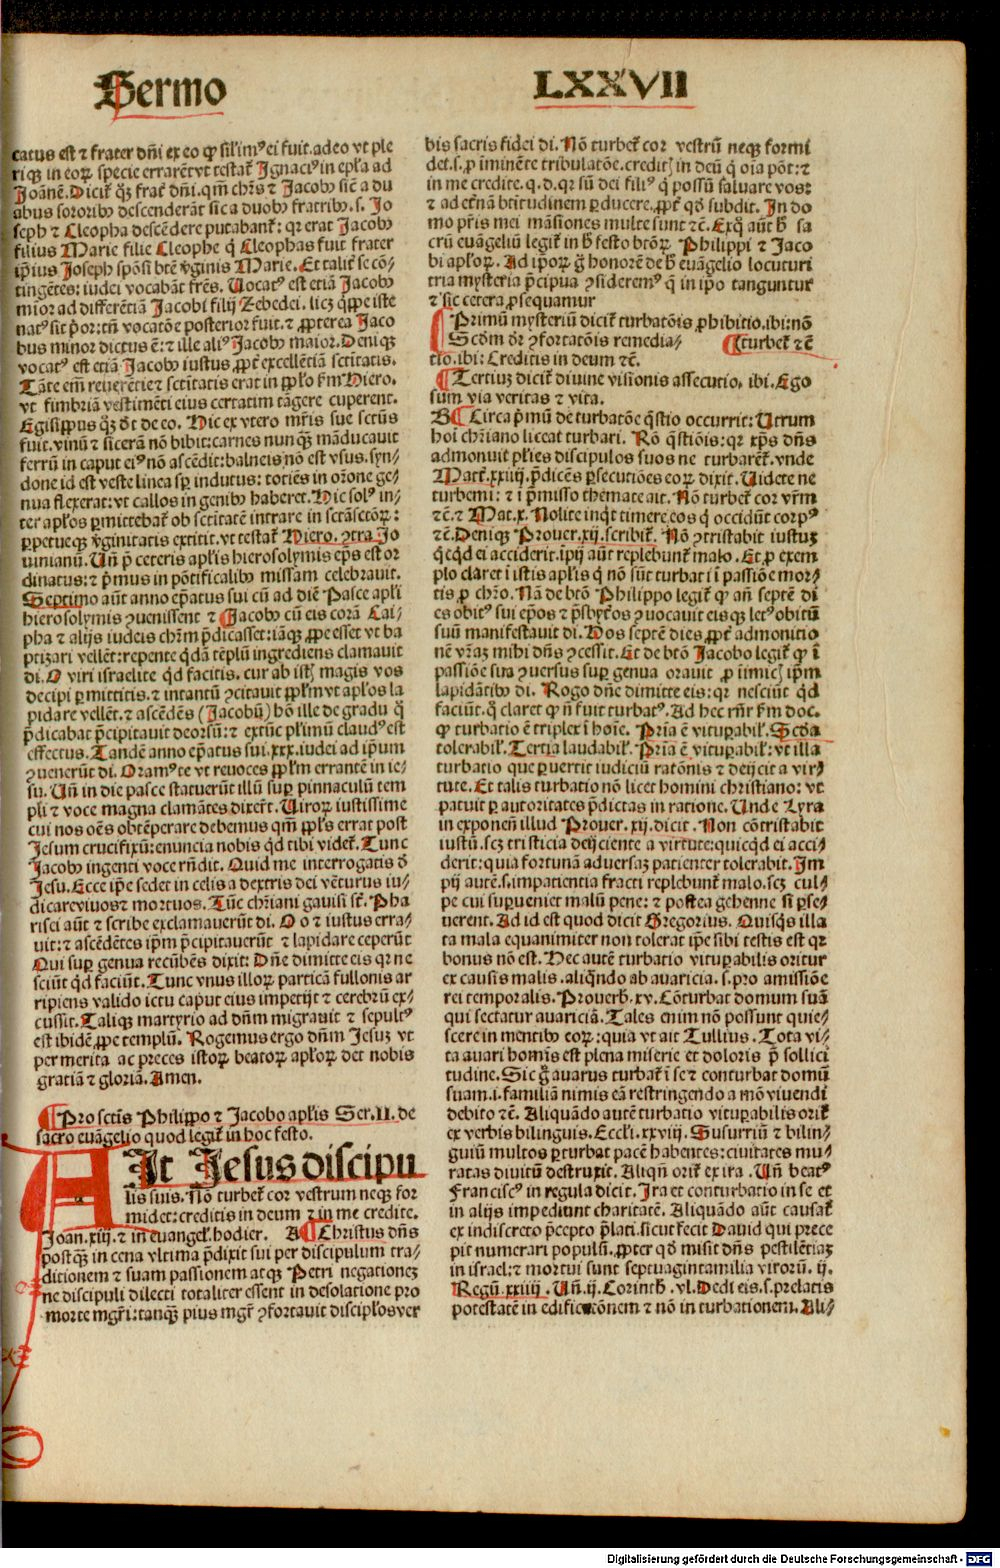 Sermo LXXVII
catus est ⁊ frater dñi ex eo ꝙ sil'imꝰ ei fuit. adeo vt ple
riqꝫ in eoꝝ specie errarẽt vt testat᷑ Ignaciꝰ in ep̃la ad
Joãnẽ. Dicit᷑ q̃ꝫ frat᷑ dñi. qm̃ chr̃s ⁊ Jacobꝰ sic̃ a du
abus sororibꝰ descenderãt sic a duobꝰ fratribꝰ. s. Jo
seph ⁊ Cleopha descẽdere putabant᷑: qr erat Jacobꝰ
filius Marie filie Cleophe q̃ Cleophas fuit frater
ip̃ius Joseph spõsi btẽ ṽginis Marie. Et talit᷑ se cõ-
tingẽtes: iudei vocabãt fr̃es. Uocatꝰ est etiã Jacobꝰ
mior ad differẽtiã Jacobi filij Zebedei. licꝫ q̃ꝓpe iste
natꝰ sit p̃or: tñ vocatõe posterior fuit. ⁊ ꝓpterea Jaco
bus minor dictus ẽ: ⁊ ille aliꝰ Jacobꝰ maior. Deniqꝫ
vocatꝰ est etiã Jacobꝰ iustus ꝓpt᷑ excellẽtiã sctitatis.
Tãte em̃ reuerẽtie ⁊ sctitatis erat in pp̃lo ẜm Hiero.
vt fimbriã vestimẽti eius certatim tãgere cuperent.
Egisippus q̃ꝫ dt̃ de eo. Hic ex vtero mr̃is sue sctũs
fuit. vinũ ⁊ sicerã nõ bibit: carnes nunqꝫ mãducauit
ferrũ in caput eiꝰ nõ ascẽdit: balneis nõ est vsus. syn-
done id est veste linea sꝑ indutus: totiẽs in or̃one ge-
nua flexerat: vt callos in genibꝰ haberet. Hic solꝰ in-
ter ap̃los ꝑmittebat᷑ ob sctitatẽ intrare in sctã sctõꝝ:
ꝑpetueqꝫ ṽginitatis extitit. vt testat᷑ Hiero. ꝯtra Jo
uinianũ. Uñ p̃ ceteris ap̃lis hierosolymis ep̃s est or
dinatus: ⁊ p̃mus in põtificalibꝰ missam celebrauit.
Septimo aũt anno ep̃atus sui cũ ad diẽ Pasce ap̃li
hierosolymis ꝯuenissent ⁊ Jacobꝰ cũ eis corã Cai-
pha ⁊ alijs iudeis chr̃m p̃dicasset: iãqꝫ ꝓpe esset vt ba
ptizari vellẽt: repente q̃dã tẽplũ ingrediens clamauit
di. O viri israelite q̃d facitis. cur ab ist᷑ magis vos
decipi ꝑmittitis. ⁊ intantũ ꝯcitauit pp̃lm vt ap̃los la
pidare vellẽt. ⁊ ascẽdẽs (Jacobũ) hõ ille de gradu q̃
p̃dicabat p̃cipitauit deorsũ: ⁊ extũc pl̃imũ claudꝰ est
effectus. Tandẽ anno ep̃atus sui. xxx. iudei ad ip̃um
ꝯuenerũt di. Oramꝰ te vt reuoces pp̃lm errantẽ in ie-
su. Uñ in die pasce statuerũt illũ suꝑ pinnaculũ tem
pli ⁊ voce magna clamãtes dixer̃t. Uiroꝝ iustissime
cui nos oẽs obtẽperare debemus qm̃ pp̃ls errat post
Jesum crucifixũ: enuncia nobis q̃d tibi videt᷑. Tunc
Jacobꝰ ingenti voce rñdit. Quid me interrogatis d̃
Jesu. Ecce ip̃e sedet in celis a dextris dei vẽturus iu-
dicare viuos ⁊ mortuos. Tũc chr̃iani gauisi st̃. Pha
risei aũt ⁊ scribe exclamauerũt di. O o ⁊ iustus erra-
uit: ⁊ ascẽdẽtes ip̃m p̃cipitauerũt ⁊ lapidare ceperũt
Qui suꝑ genua recũbẽs dixit: Dñe dimitte eis qr ne
sciũt q̃d faciũt. Tunc vnus illoꝝ particã fullonis ar
ripiens valido ictu caput eius impetijt ⁊ cerebrũ ex-
cussit. Taliqꝫ martyrio ad dñm migrauit ⁊ sepultꝰ
est ibidẽ ꝓpe templũ. Rogemus ergo dñm Jesuꝫ vt
per merita ac preces istoꝝ beatoꝝ ap̃loꝝ det nobis
gratiã ⁊ gloriã. Amen.
¶ Pro sctis Philippo ⁊ Jacobo ap̃lis Ser. II. de
sacro euãgelio quod legit᷑ in hoc festo.
AIt Jesus discipu
lis suis. Nõ turbet᷑ cor vestrum neqꝫ for
midet: creditis in deum ⁊ in me credite.
Joan. xiij. ⁊ in euangel. hodier. A ¶ Christus dñs
postq̃ꝫ in cena vltima p̃dixit sui per discipulum tra-
ditionem ⁊ suam passionem atqꝫ Petri negationeꝫ
ne discipuli dilecti totaliter essent in desolatione pro
morte mgr̃i: tanq̃ꝫ pius mgr̃ ꝯfortauit discip̃los ver
bis sacris fidei di. Nõ turbet᷑ cor vestrũ neqꝫ formi
det. s. ꝓ iminẽte tribulatõe. credit᷑ in deũ q̃ oĩa põt: ⁊
in me credite. q. d. qr sũ dei filiꝰ q̃ possũ saluare vos:
⁊ ad et̃nã btitudinem ꝑducere. ꝓpt᷑ qd̃ subdit. In do
mo pr̃is mei mãsiones multe sunt ⁊c̃. Ex q̃ aũt h̃ sa
crũ euãgeliũ legit᷑ in h̃ festo btõꝝ Philippi ⁊ Jaco
bi ap̃loꝝ. Ad ip̃oꝝ g̃ honorẽ de h̃ euãgelio locuturi
tria mysteria p̃cipua ꝯsiderem̃ q̃ in ip̃o tanguntur
⁊ sic cetera ꝓsequamur
¶ Primũ mysteriũ dicit᷑ turbatõis ꝓhibitio. ibi: nõ
Scd̃m dr̃ ꝯfortatõis remedia- ¶ turbet᷑ ⁊c̃
tio. ibi: Creditis in deum ⁊c̃.
¶ Tertiuꝫ dicit᷑ diuine visionis assecutio. ibi. Ego
sum via veritas ⁊ vita.
B ¶ Circa p̃mũ de turbatõe q̃stio occurrit: Utrum
hoi chr̃iano liceat turbari. Rõ q̃stiõis: qr xp̃s dñs
admonuit pl̃ies discipulos suos ne turbarẽt᷑. vnde
Matt᷑. xxiiij. p̃dicẽs ꝑsecutiões eoꝝ dixit. Uidete ne
turbemi: ⁊ i p̃misso themate ait. Nõ turbet᷑ cor vr̃m
⁊c̃. ⁊ Mat. x. Nolite inq̃t timere eos q̃ occidũt corpꝰ
⁊c̃. Deniqꝫ Prouer. xij. scribit᷑. Nõ ꝯtristabit iustuꝫ
q̃cq̃d ei acciderit. ipij aũt replebunt᷑ malo. Et ꝓ exem
plo claret i istis ap̃lis q̃ nõ sũt turbati i passiõe mor-
tis ꝓ chr̃o. Nã de btõ Philippo legit᷑ ꝙ añ septẽ di
es obitꝰ sui ep̃os ⁊ p̃sbyt̃os ꝯuocauit eisqꝫ letꝰ obitũ
suũ manifestauit di. Hos septẽ dies ꝓpt᷑ admonitio
nẽ vr̃aꝫ mihi dñs ꝯcessit. Et de btõ Jacobo legit᷑ ꝙ i
passiõe sua ꝯuersus suꝑ genua orauit ꝓ iimic᷑ ip̃m
lapidãtibꝰ di. Rogo dñe dimitte eis: qr nesciũt q̃d
faciũt. q̃ claret ꝙ ñ fuit turbatꝰ. Ad hec rñr̃ ẜm doc.
ꝙ turbatio ẽ triplex i hoĩe. Pria ẽ vituꝑabil̃. Scd̃a
tolerabil̃. Tertia laudabil̃. Pria ẽ vituꝑabil̃: vt illa
turbatio que ꝑuertit iudiciũ ratõnis ⁊ deijcit a vir-
tute. Et talis turbatio nõ licet homini christiano: vt
patuit ꝑ autoritates p̃dictas in ratione. Unde Lyra
in exponeñ illud Prouer. xij. dicit. Non cõtristabit
iustũ. scꝫ tristicia deijciente a virtute: quicq̃d ei acci-
derit: quia fortunã aduersaꝫ patienter tolerabit. Im
pij autẽ. s. impatientia fracti replebunt᷑ malo. scꝫ cul-
pe cui suꝑueniet malũ pene: ⁊ postea gehenne si ꝑse-
uerent. Ad id est quod dicit Gregorius. Quisq̃s illa
ta mala equanimiter non tolerat ip̃e sibi testis est qr
bonus nõ est. Hec autẽ turbatio vituꝑabilis oritur
ex causis malis. aliqñdo ab auaricia. s. pro amissiõe
rei temporalis. Prouerb̃. xv. Cõturbat domum suã
qui sectatur auariciã. Tales enim nõ possunt quie-
scere in mentibꝰ eoꝝ: quia vt ait Tullius. Tota vi-
ta auari homĩs est plena miserie et doloris p̃ sollici
tudine. Sic g̃ auarus turbat᷑ i se ⁊ conturbat domũ
suam. i. familiã nimis eã restringendo a mõ viuendi
debito ⁊c̃. Aliquãdo autẽ turbatio vituꝑabilis orit᷑
ex verbis bilinguis. Eccli. xxviij. Susurriũ ⁊ bilin-
guiũ multos ꝑturbat pacẽ habentes: ciuitates mu-
ratas diuitũ destruxit. Aliqñ orit᷑ ex ira. Uñ beatꝰ
Franciscꝰ in regula dicit. Ira et conturbatio in se et
in alijs impediunt charitatẽ. Aliquãdo aũt causat᷑
ex indiscreto p̃cepto p̃lati. sicut fecit Dauid qui prece
pit numerari populũ. ꝓpter qd̃ misit dñs pestilẽtiaꝫ
in israel: ⁊ mortui sunt septuagintamilia viroꝝ. ij.
Regũ. xxiiij. Uñ. ij. Corinth̃. vl. Dedi eis. s. prelatis
potestatẽ in edificatõnem ⁊ nõ in turbationem. Ali-
Digitalisierung gefördert durch die Deutsche Forschungsgemeinschaft - DFG